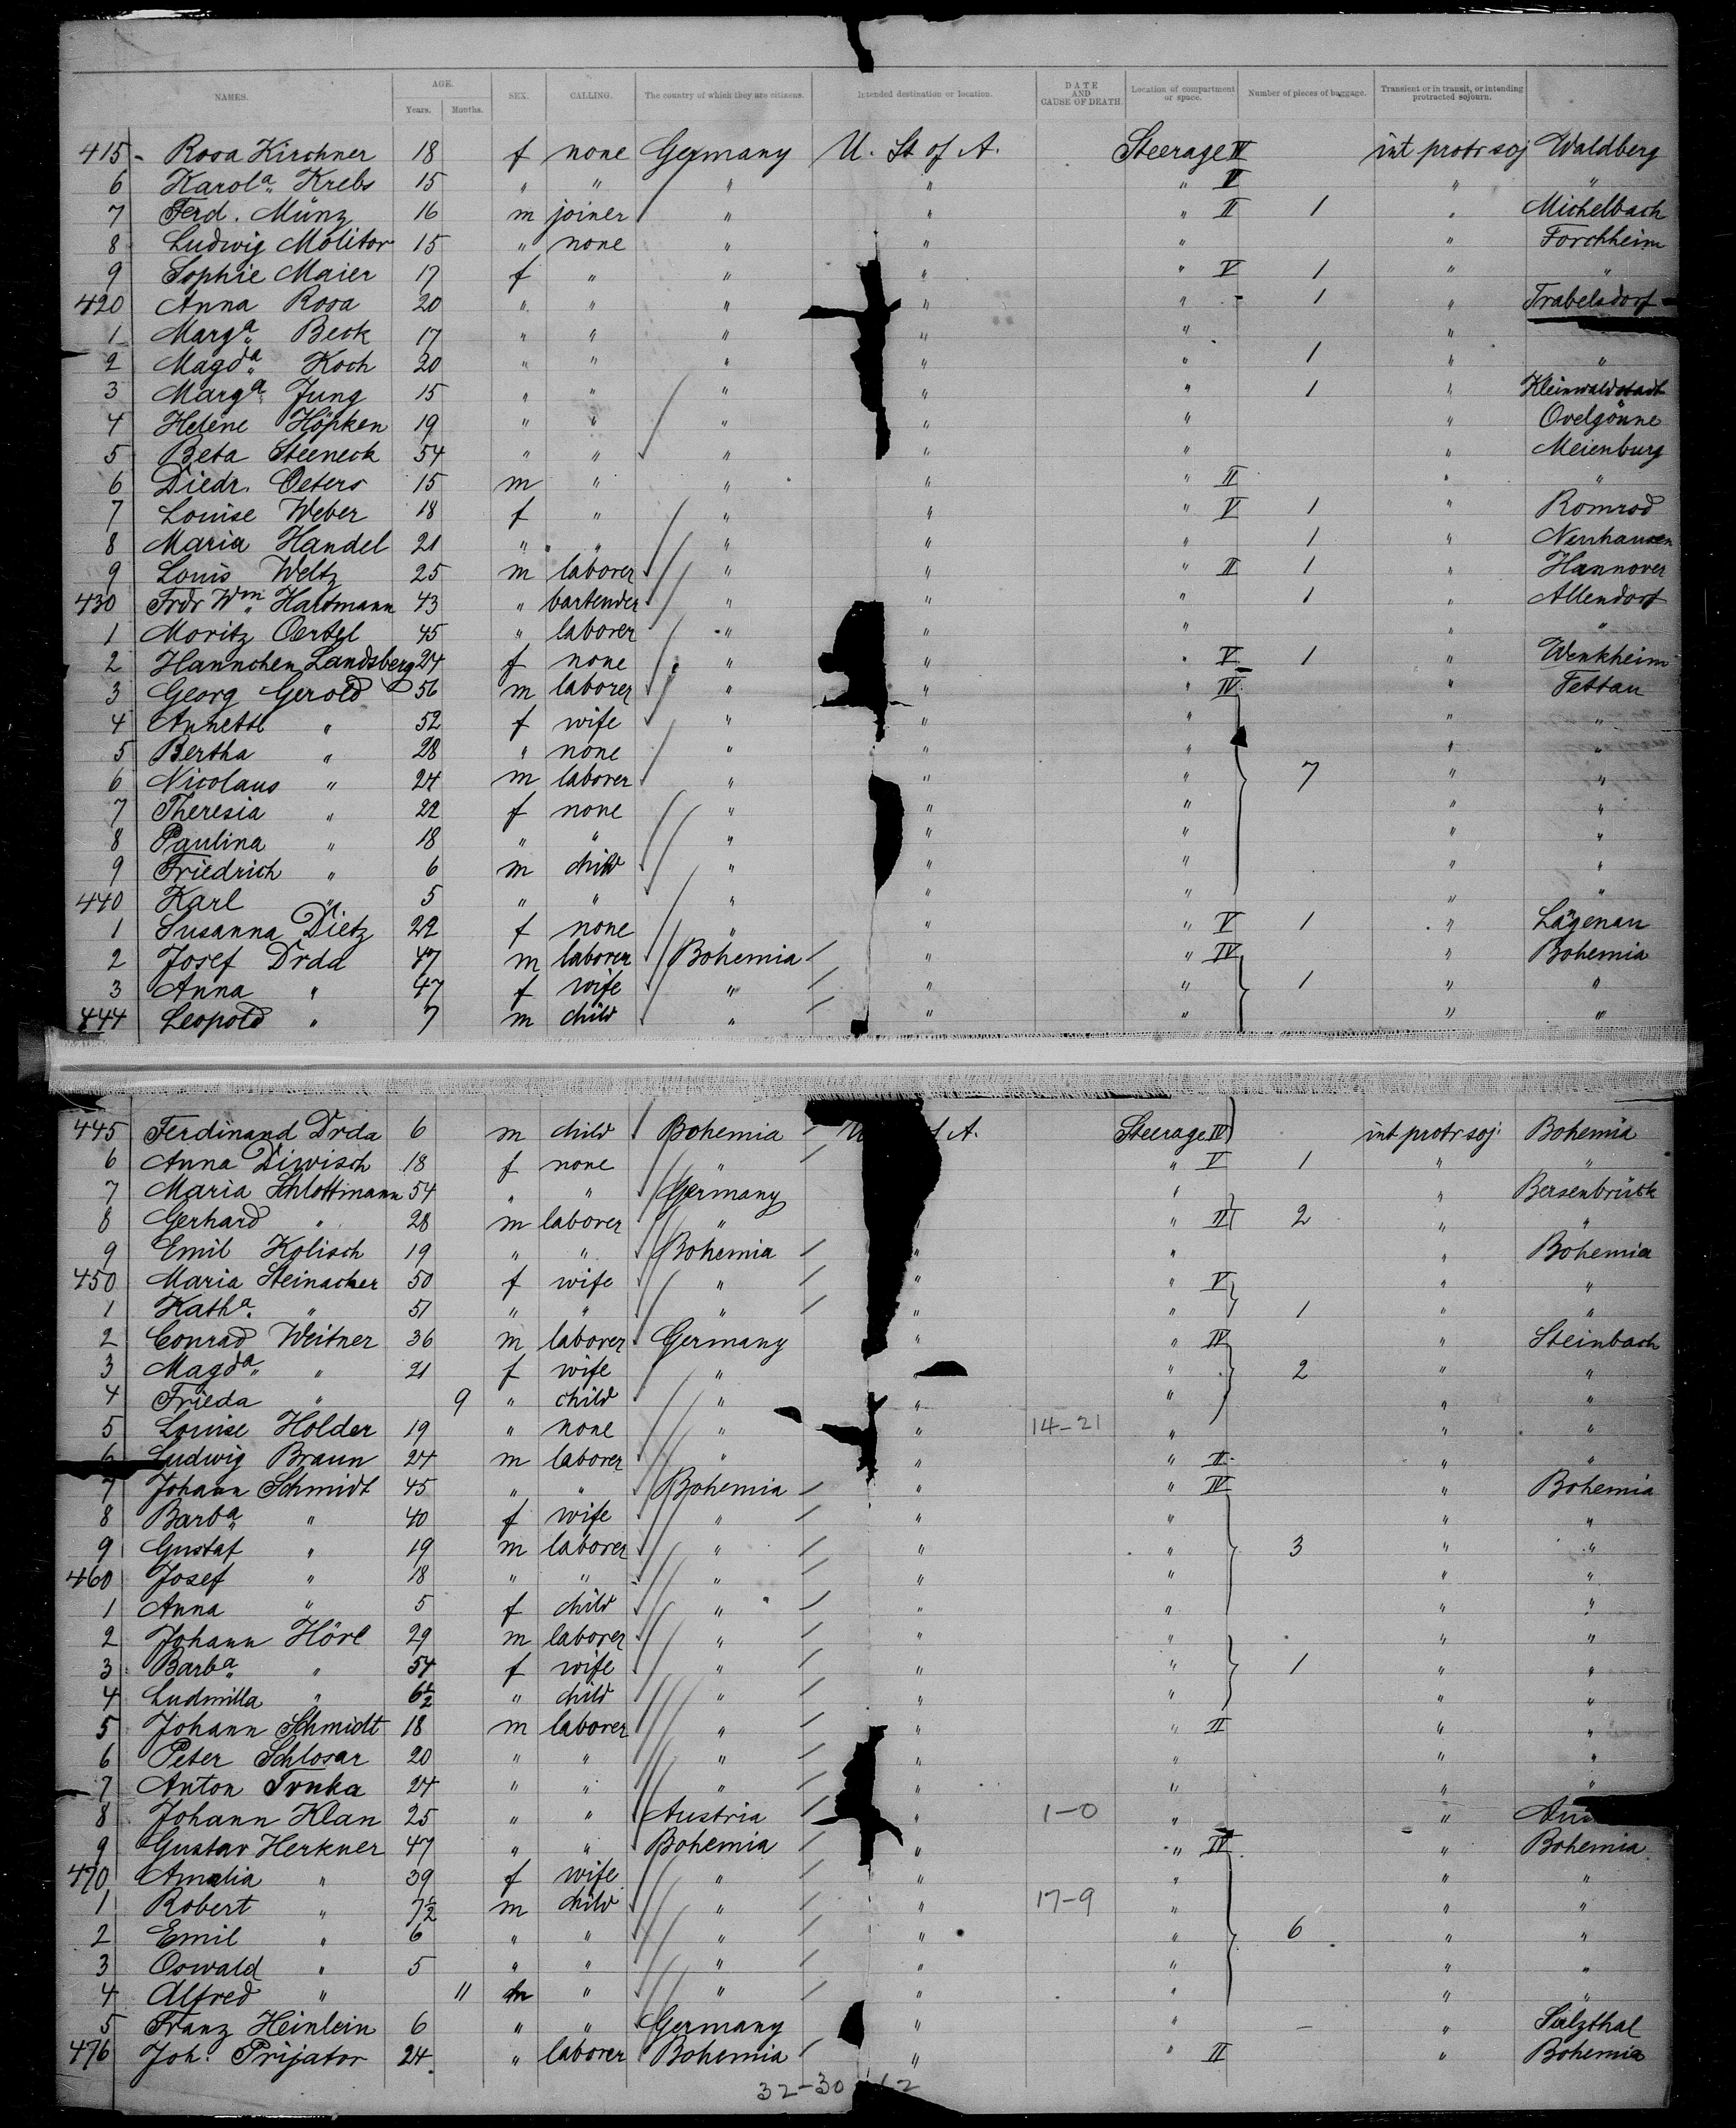 NAMES. AGE. Years. Months. SEX. CALLING. The country of which they are citizens. Intended destination or location. DATE AND CAUSE OF DEATH. Location of compartment or space. Number of pieces of baggage. Transient or in transit, or intending protracted sojourn.
415 - Rosa Kirchner 18 f none Germany U. St of A. Steerage IV int protr soj Waldberg
6 Karola Krebs 15 " " " " " V " "
7 Ferd. Münz 16 m joiner " " " II 1 " Michelbach
8 Ludwig Molitor 15 " none " " " " Forchheim
9 Sophie Maier 17 f " " " " V 1 " "
420 Anna Rosa 20 " " " " " - 1 " Trabelsdorf
1 Marga Beck 17 " " " " " "
2 Magda Koch 20 " " " " " 1 " "
3 Marga Jung 15 " " " " " 1 " Kleinwaldstadt
4 Helene Höpken 19 " " " " " " Ovelgönne
5 Beta Steeneck 54 " " " " " " Meienburg
6 Diedr. Oeters 15 m " " " " II " "
7 Louise Weber 18 f " " " " V 1 " Romrod
8 Maria Handel 21 " " " " " 1 "
9 Louis Weltz 25 m laborer " " " II 1 " Hannover
430 Frdr Wm Hartmann 43 " bartender " " " 1 " Allendorf
1 Moritz Oertel 45 " laborer " " " " "
2 Hannchen Landsberg 24 f none " " " V 1 " Wenkheim
3 Georg Gerold 56 m laborer " " " IV " Tettau
4 Annette " 52 f wife " " " " "
5 Bertha " 28 " none " " " " "
6 Nicolaus " 24 m laborer " " " 7 " "
7 Theresia " 22 f none " " " " "
8 Paulina " 18 " " " " " " "
9 Friedrich " 6 m child " " " " "
440 Karl " 5 " " " " " " "
1 Susanna Dietz 22 f none " " " V 1 " Lägenau
2 Josef Drda 47 m laborer Bohemia " " IV " Bohemia
3 Anna " 47 f wife " " " 1 " "
444 Leopold " 7 m child " " " " "
445 Ferdinand Drda 6 m child Bohemia U A. Steerage IV int protr soj. Bohemia
6 Anna Diwisch 18 f none " " V 1 " "
7 Maria Schlottmann 54 " " Germany " " Bersenbrück
8 Gerhard " 28 m laborer " " II 2 " "
9 Emil Kolisch 19 " " Bohemia " " " Bohemia
450 Maria Steinacker 50 f wife " " " V " "
1 Katha " 51 " " " " " 1 " "
2 Conrad Weitner 36 m laborer Germany " " IV " Steinbach
3 Magda " 21 f wife " " 2 " "
4 Frieda " 9 " child " " " " "
5 Louise Holder 19 " none " " 14-21 " " "
6 Ludwig Braun 24 m laborer " " " II " "
7 Johann Schmidt 45 " " Bohemia " " IV " Bohemia
8 Barba " 40 f wife " " " " "
9 Gustaf " 19 m laborer " " " 3 " "
460 Josef " 18 " " " " " " "
1 Anna " 5 f child " " " " "
2 Johann Hörl 29 m laborer " " " " "
3 Barba " 54 f wife " " " 1 " "
4 Ludmilla " 6½ " child " " " " "
5 Johann Schmidt 18 m laborer " " " II " "
6 Peter Schlosar 20 " " " " " " "
7 Anton 24 " " " " " " "
8 Johann Klan 25 " " Austria " 1-0 " "
9 Gustav Herkner 47 " " Bohemia " " IV " Bohemia
470 Amalia " 39 f wife " " " " "
1 Robert " 7½ m child " " 17-9 " " "
2 Emil " 6 " " " " " 6 " "
3 Oswald " 5 " " " " " " "
4 Alfred " 11 m " " " " " "
5 Franz Heinlein 6 " " Germany " " - " Sulzthal
476 Joh. Prijator 24 " laborer Bohemia " " II " Bohemia
32-30 12